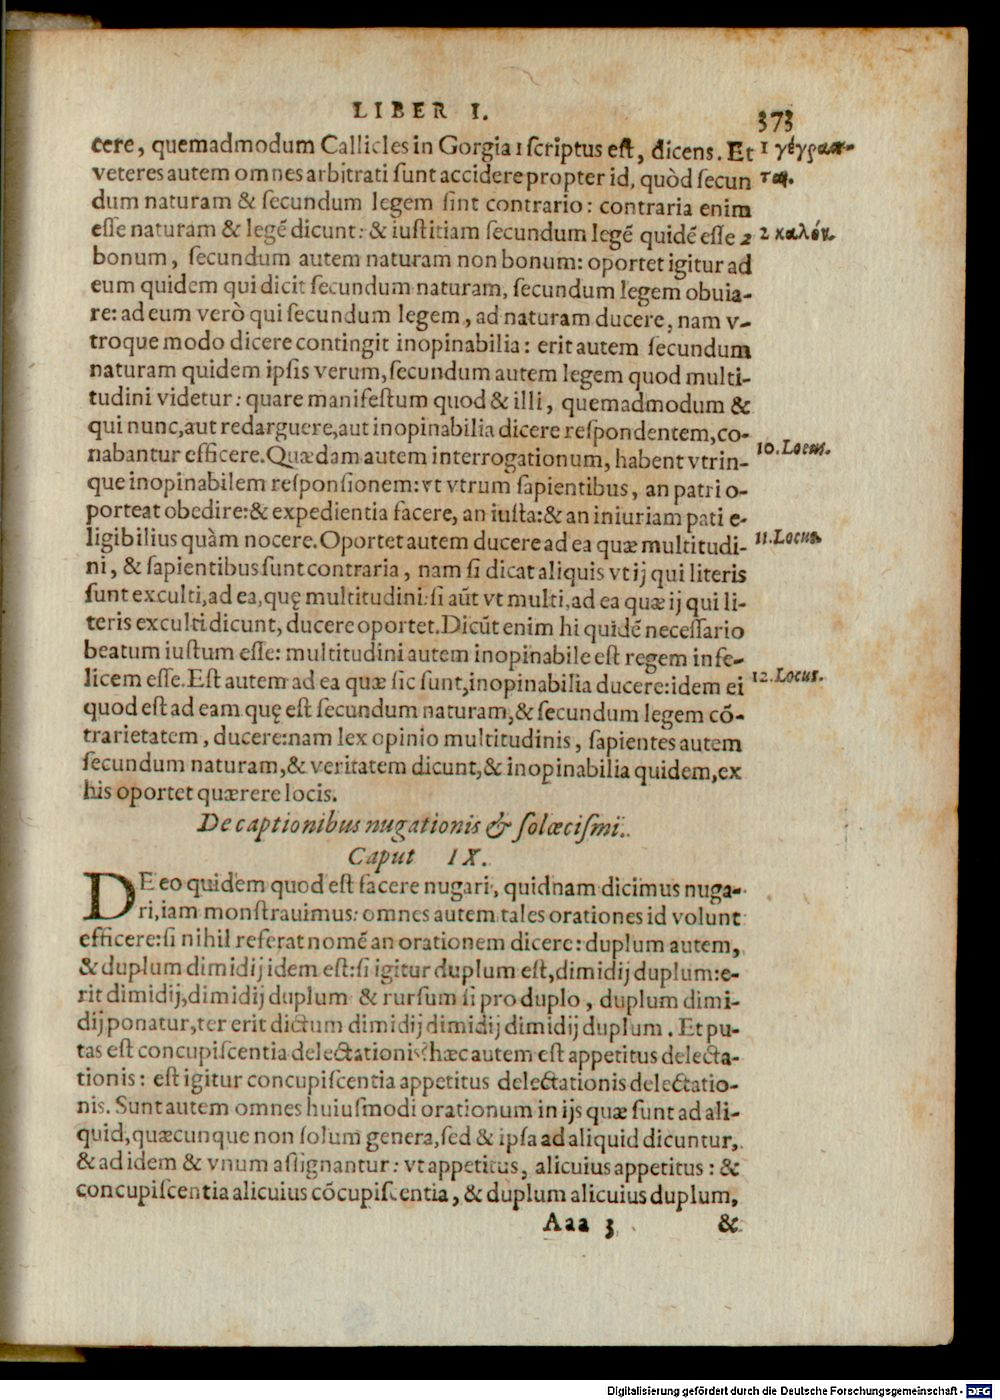 LIBER I.
373
cere, quemadmodum Callicles in Gorgia 1 scriptus est, dicens. Et
1 γέγραπ-
veteres autem omnes arbitrati sunt accidere propter id, quòd secun
ται.
dum naturam & secundum legem sint contrario: contraria enim
esse naturam & legē dicunt: & iustitiam secundum legē quidē esse 2
2 καλόν.
bonum, secundum autem naturam non bonum: oportet igitur ad
eum quidem qui dicit secundum naturam, secundum legem obuia-
re: ad eum verò qui secundum legem, ad naturam ducere, nam v-
troque modo dicere contingit inopinabilia: erit autem secundum
naturam quidem ipsis verum, secundum autem legem quod multi-
tudini videtur: quare manifestum quod & illi, quemadmodum &
qui nunc, aut redarguere, aut inopinabilia dicere respondentem, co-
nabantur efficere. Quædam autem interrogationum, habent vtrin-
10. Locus.
que inopinabilem responsionem: vt vtrum sapientibus, an patri o-
porteat obedire: & expedientia facere, an iusta: & an iniuriam pati e-
ligibilius quàm nocere. Oportet autem ducere ad ea quæ multitudi-
11. Locus.
ni, & sapientibus sunt contraria, nam si dicat aliquis vt ij qui literis
sunt exculti, ad ea, quę multitudini: si aūt vt multi, ad ea quæ ij qui li-
teris exculti dicunt, ducere oportet. Dicūt enim hi quidē necessario
beatum iustum esse: multitudini autem inopinabile est regem infe-
licem esse. Est autem ad ea quæ sic sunt, inopinabilia ducere: idem ei
12. Locus.
quod est ad eam quę est secundum naturam, & secundum legem cō-
trarietatem, ducere: nam lex opinio multitudinis, sapientes autem
secundum naturam, & veritatem dicunt, & inopinabilia quidem, ex
his oportet quærere locis.
De captionibus nugationis & solœcismi.
Caput IX.
DE eo quidem quod est facere nugari, quidnam dicimus nuga-
ri, iam monstrauimus: omnes autem tales orationes id volunt
efficere: si nihil referat nomē an orationem dicere: duplum autem,
& duplum dimidij idem est: si igitur duplum est, dimidij duplum: e-
rit dimidij, dimidij duplum & rursum si pro duplo, duplum dimi-
dij ponatur, ter erit dictum dimidij dimidij dimidij duplum. Et pu-
tas est concupiscentia delectationis? hæc autem est appetitus delecta-
tionis: est igitur concupiscentia appetitus delectationis delectatio-
nis. Sunt autem omnes huiusmodi orationum in ijs quæ sunt ad ali-
quid, quæcunque non solum genera, sed & ipsa ad aliquid dicuntur,
& ad idem & vnum assignantur: vt appetitus, alicuius appetitus: &
concupiscentia alicuius cōcupiscentia, & duplum alicuius duplum,
Aaa 3
&
Digitalisierung gefördert durch die Deutsche Forschungsgemeinschaft - DFG